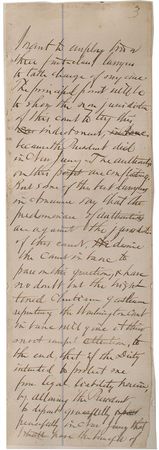 3
I want to employ two or
three first class lawyers
to take charge of my case
The principal point will be
to show the non jurisdiction
of this court to try this
indictment,
because the President died
in New Jersey. The authorities
on this point are conflicting
But some of the best lawyers
in America say that the
predominance of authorities
are against the jurisdic
of this court. I desire
the Court in banc to
pass on this question, & have
no doubt but the
reputing the Washington Court
in banc will give it their
most attention, to
the end that if the Deity
intended to protect me
from legal liability herein,
by allowing the President
to depart gracefully
peacefully in New Jersey that
I shall have the benefit of